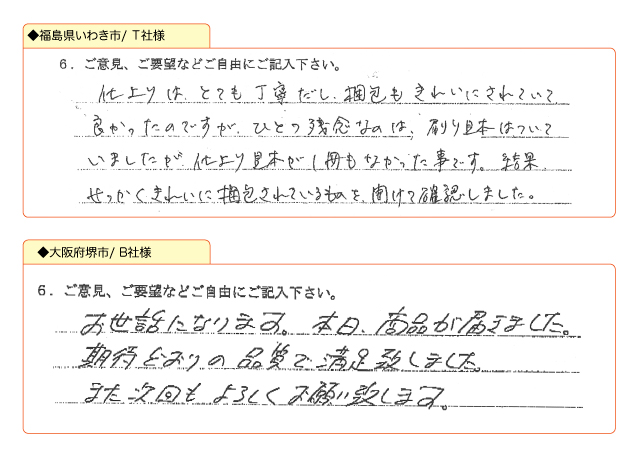 ◆福島県いわき市/ T社様
6. ご意見、ご要望などご自由にご記入下さい。
仕上りは、とても丁寧だし、梱包もきれいにされていて
良かったのですが、ひとつ残念なのは、刷り見本はついて
いましたが、仕上り見本が1冊もなかった事です。結果、
せっかくきれいに梱包されているものを、開けて確認しました。
◆大阪府堺市/ B社様
6. ご意見、ご要望などご自由にご記入下さい。
お世話になります。本日、商品が届きました。
期待どおりの品質で満足致しました。
また次回もよろしくお願い致します。